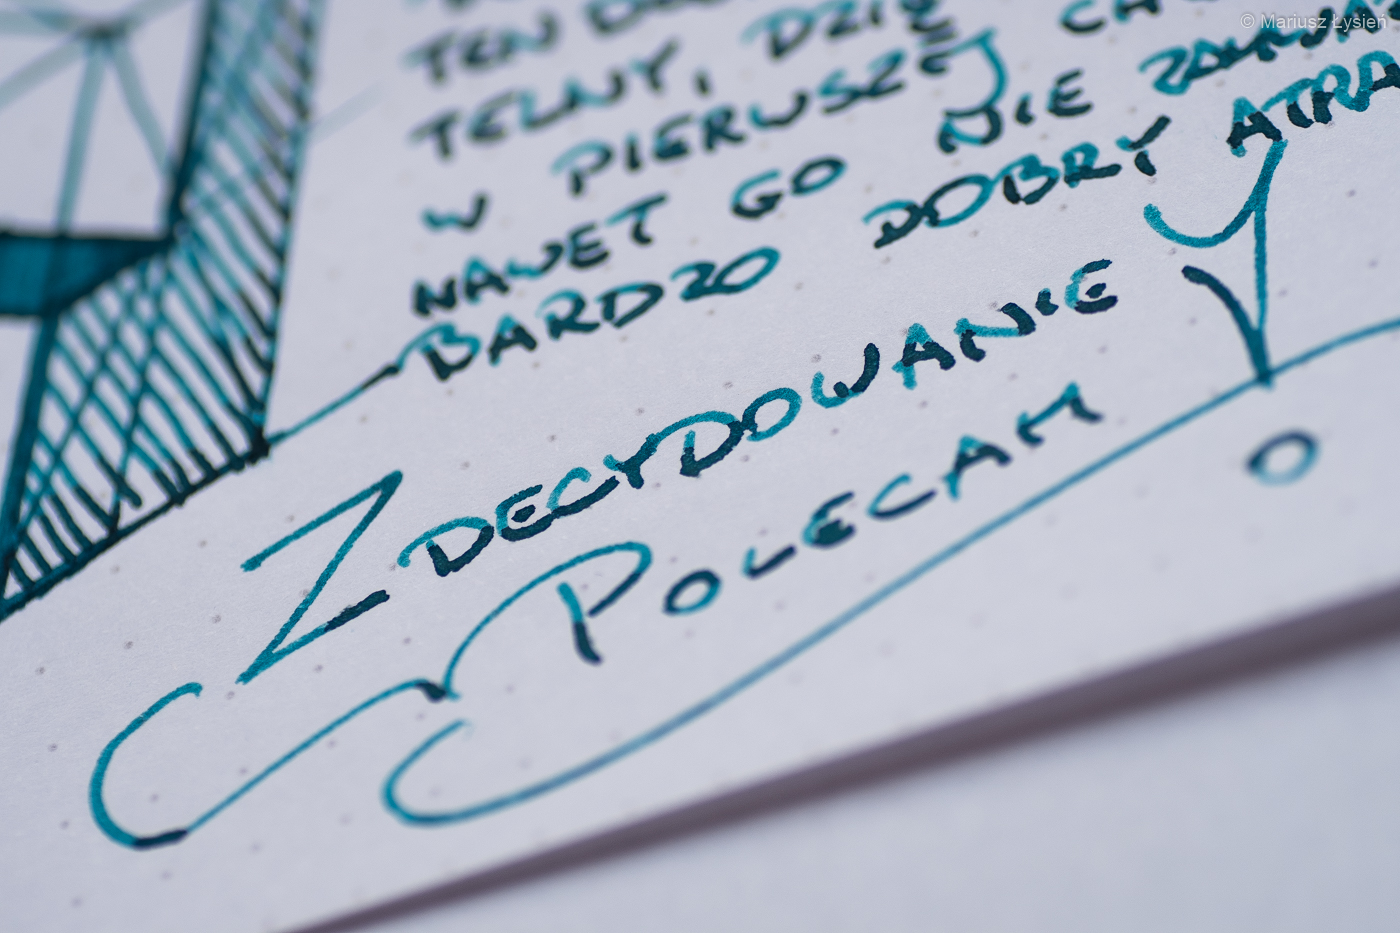 © Mariusz Łysień
TEN
TELNY, DZIĘ
W PIERWSZEJ
NAWET GO NIE
BARDZO DOBRY ATRA
ZDECYDOWANIE
POLECAM